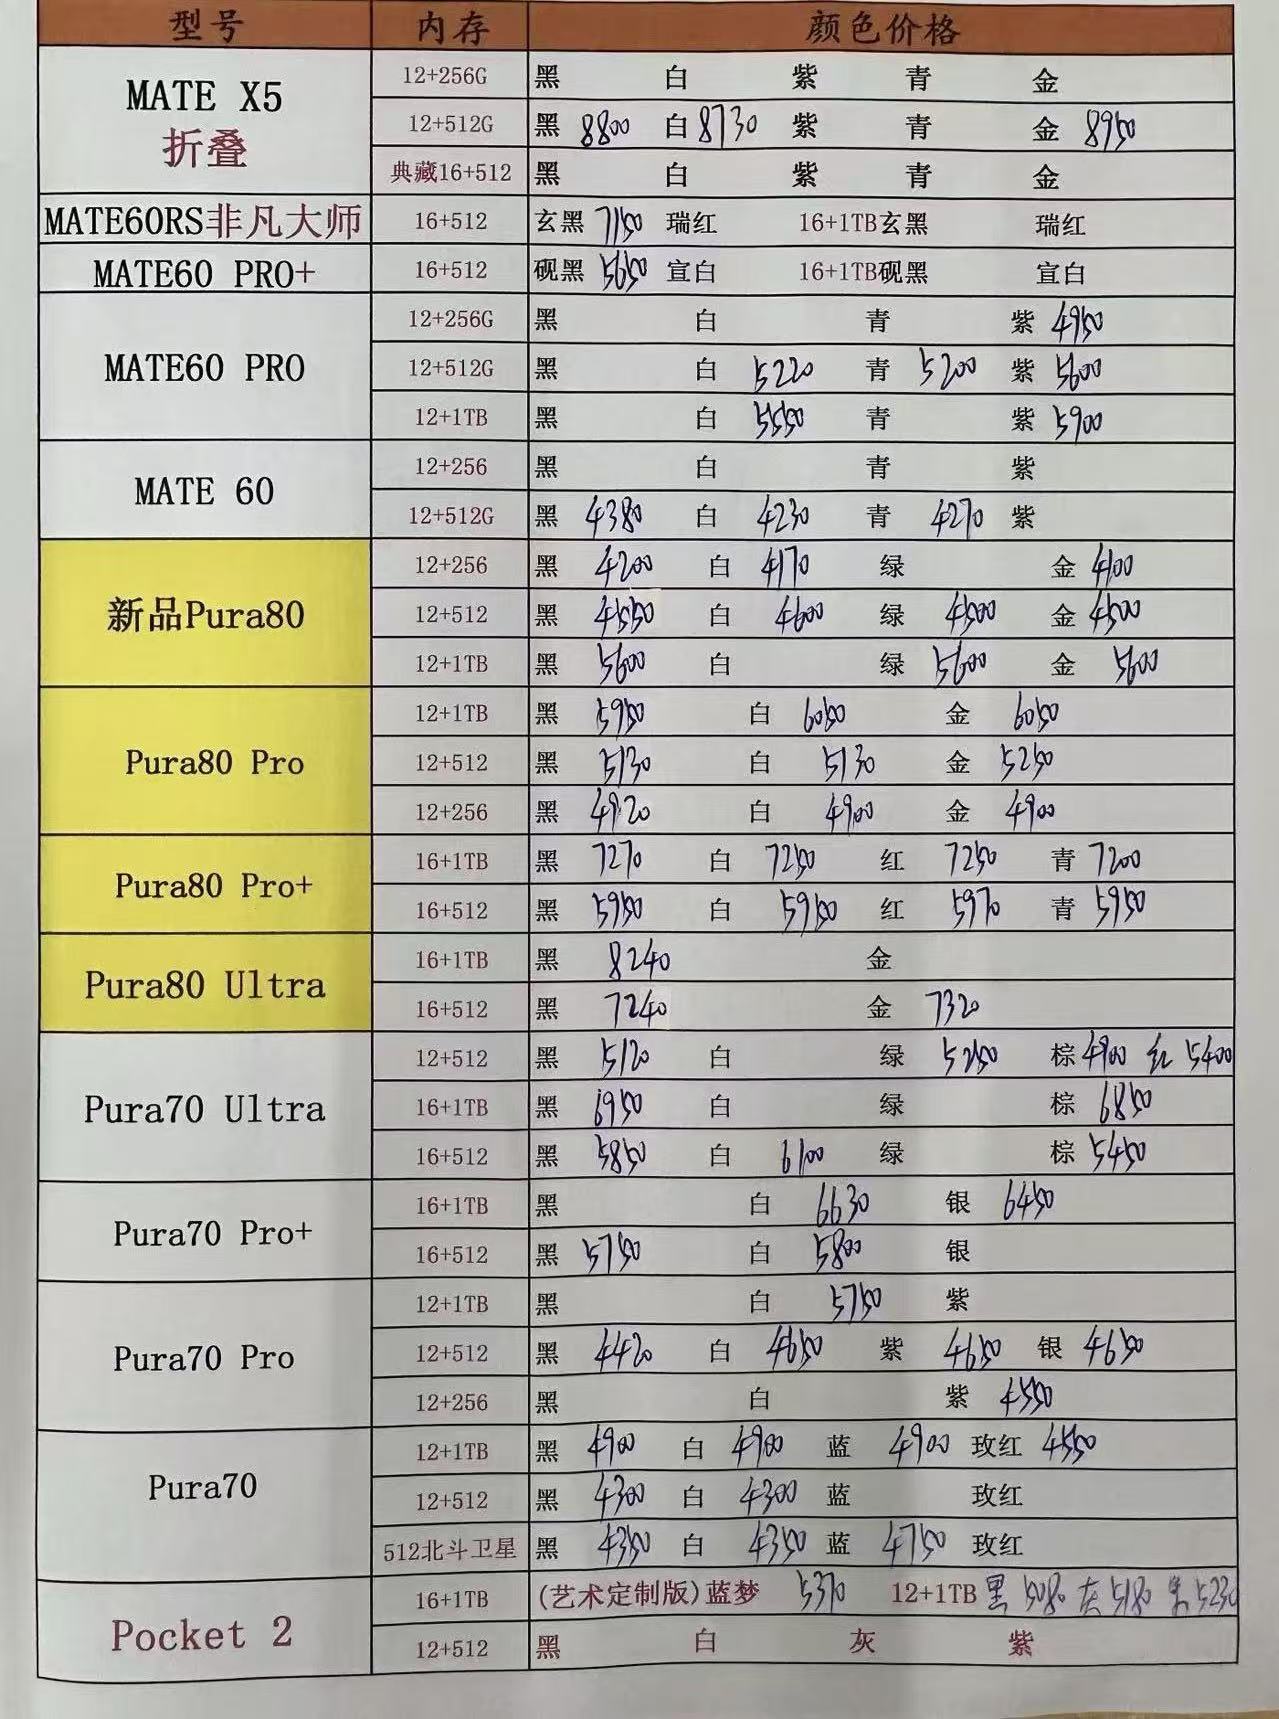 型号 内存 颜色价格
MATE X5 折叠
12+256G 黑 白 紫 青 金
12+512G 黑 8800 白 8730 紫 青 金 8950
典藏16+512 黑 白 紫 青 金
MATE60RS非凡大师 16+512 玄黑 7150 瑞红 16+1TB玄黑 瑞红
MATE60 PRO+ 16+512 砚黑 5650 宣白 16+1TB砚黑 宣白
MATE60 PRO
12+256G 黑 白 青 紫 4950
12+512G 黑 白 5220 青 5200 紫 5600
12+1TB 黑 白 5550 青 紫 5900
MATE 60
12+256 黑 白 青 紫
12+512G 黑 4380 白 4230 青 4270 紫
新品Pura80
12+256 黑 4200 白 4170 绿 金 4100
12+512 黑 4550 白 4600 绿 4500 金 4500
12+1TB 黑 5600 白 绿 5600 金 5600
Pura80 Pro
12+1TB 黑 5950 白 6050 金 6050
12+512 黑 5130 白 5130 金 5250
12+256 黑 4920 白 4900 金 4900
Pura80 Pro+
16+1TB 黑 7270 白 7250 红 7250 青 7200
16+512 黑 5950 白 5950 红 5970 青 5950
Pura80 Ultra
16+1TB 黑 8240 金
16+512 黑 7240 金 7320
Pura70 Ultra
12+512 黑 5120 白 绿 5250 棕 4900 红 5400
16+1TB 黑 6950 白 绿 棕 6850
16+512 黑 5850 白 6100 绿 棕 5450
Pura70 Pro+
16+1TB 黑 白 6630 银 6450
16+512 黑 5750 白 5800 银
Pura70 Pro
12+1TB 黑 白 5750 紫
12+512 黑 4420 白 4650 紫 4650 银 4650
12+256 黑 白 紫 4550
Pura70
12+1TB 黑 4900 白 4900 蓝 4900 玫红 4550
12+512 黑 4300 白 4300 蓝 玫红
512北斗卫星 黑 4350 白 4350 蓝 4750 玫红
Pocket 2
16+1TB (艺术定制版)蓝梦 5370 12+1TB 黑 5080 灰 5180 5230
12+512 黑 白 灰 紫